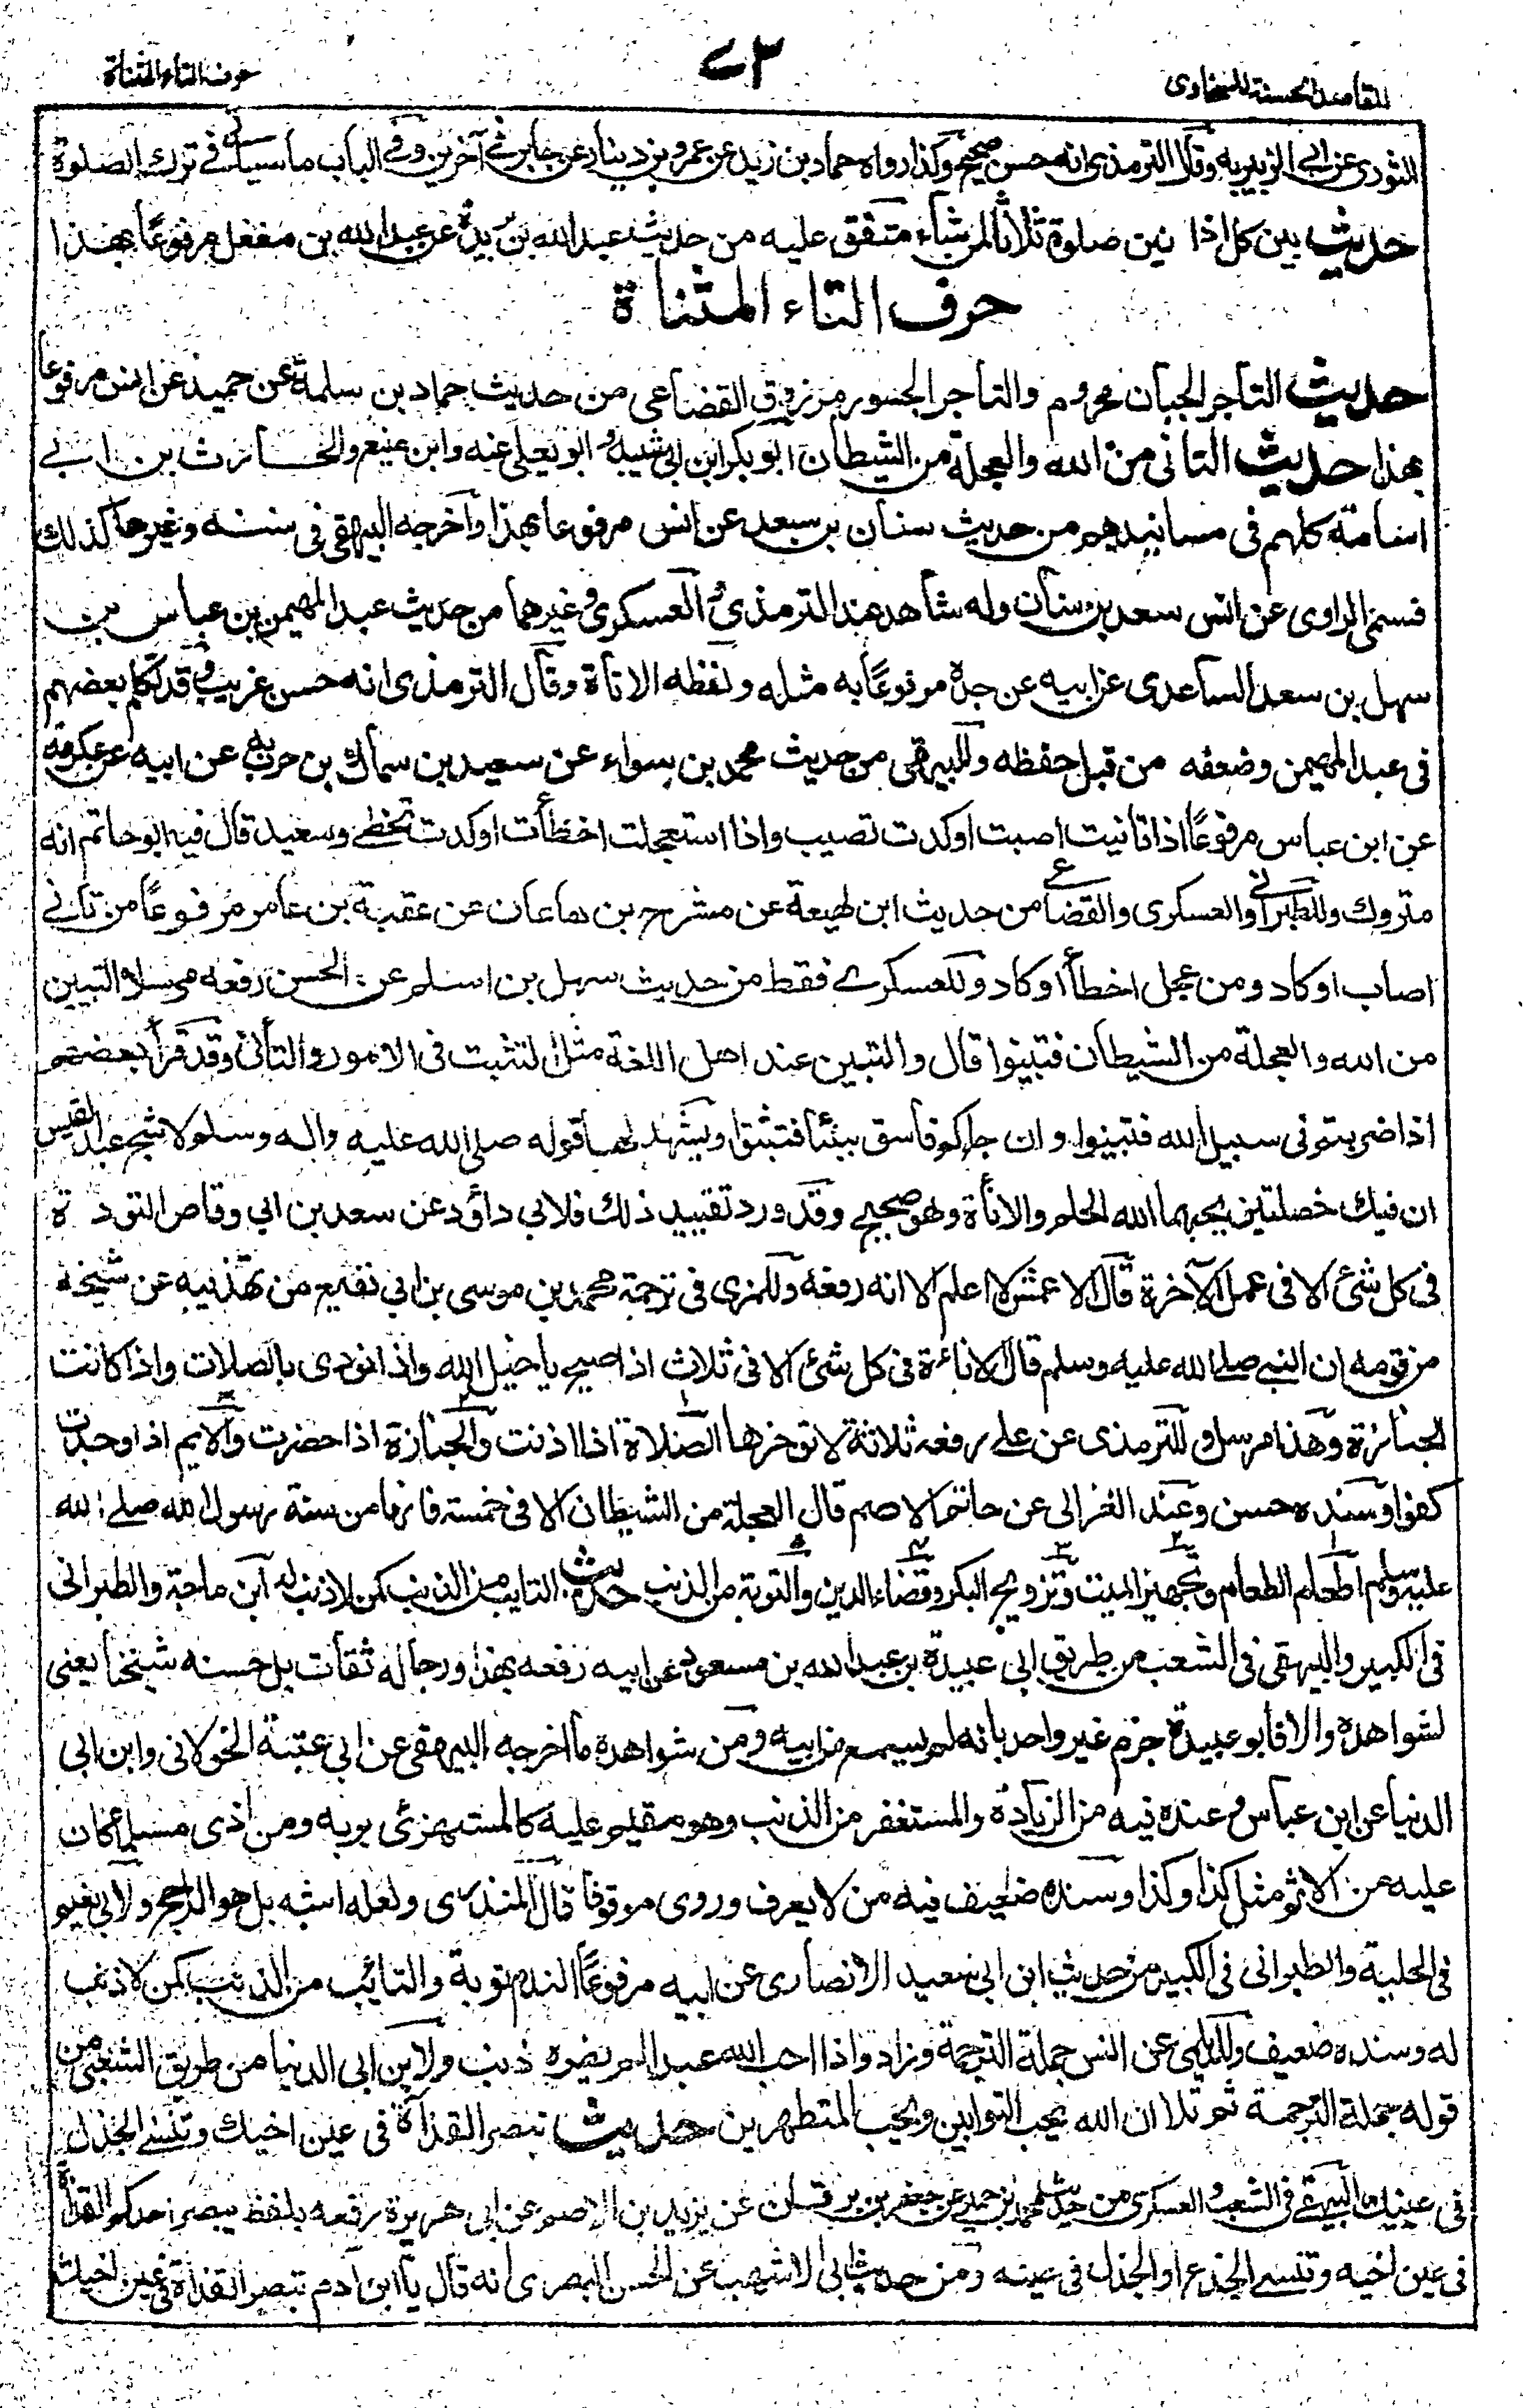 المقاصد الحسنة للسخاوى
٧٣
حرف التاء المثناة
للثورى عن ابى الزبير به وقال الترمذى انه حسن صحيح وكذا رواه حماد بن زيد عن عمرو بن دينار عن جابر فى آخرين وفى الباب ما سياتى فى ترك الصلوة
حديث بين كل اذانين صلوة ثلاثا لمن شاء متفق عليه من حديث عبد الله بن بريدة عن عبد الله بن مغفل مرفوعا بهذا
حرف التاء المثناة
حديث التاجر الجبان محروم والتاجر الجسور مرزوق القضاعى من حديث حماد بن سلمة عن حميد عن انس مرفوعا
بهذا حديث التانى من الله والعجلة من الشيطان ابو بكر ابن ابى شيبة و ابو يعلى عنه وابن منيع والحارث بن ابى
اسامة كلهم فى مسانيدهم من حديث سنان بن سعد عن انس مرفوعا بهذا واخرجه البيهقى فى سننه وغيرها كذلك
فسمى الراوى عن انس سعد بن سنان وله شاهد عند الترمذى و العسكرى وغيرهما من حديث عبد المهيمن بن عباس بن
سهل بن سعد الساعدى عن ابيه عن جده مرفوعا به مثله ولفظه الاناة وقال الترمذى انه حسن غريب وقد تكلم بعضهم
فى عبد المهيمن وضعفه من قبل حفظه وللبيهقى من حديث محمد بن سواء عن سعيد بن سماك بن حرب عن ابيه عن عكرمة
عن ابن عباس مرفوعا اذا تانيت اصبت او كدت تصيب واذا استعجلت اخطأت او كدت تخطى وسعيد قال فيه ابو حاتم انه
متروك وللطبرانى والعسكرى والقضاعى من حديث ابن لهيعة عن مشرح بن هاعان عن عقبة بن عامر مرفوعا من تانى
اصاب او كاد ومن عجل اخطأ او كاد وللعسكرى فقط من حديث سهل بن اسلم عن الحسن رفعه مرسلا التبين
من الله والعجلة من الشيطان فتبينوا قال والتبين عند اهل اللغة مثل التثبت فى الامور والتأنى وقد قرأ بعضهم
اذا ضربتم فى سبيل الله فتبينوا و ان جاءكم فاسق بنبأ فتثبتوا ويشهد لهما قوله صلى الله عليه واله وسلم لاشج عبد القيس
ان فيك خصلتين يحبهما الله الحلم والاناة وهو صحيح وقد ورد تقييد ذلك فلابى داؤد عن سعد بن ابى وقاص التودة
فى كل شئ الا فى عمل الآخرة قال الاعمش لا اعلم الا انه رفعه وللمزى فى ترجمة محمد بن موسى بن ابى نفيع من تهذيبه عن شيخة
من قومه ان النبى صلى الله عليه وسلم قال الاناءة فى كل شئ الا فى ثلاث اذا صيح يا خيل الله واذا نودى بالصلات واذا كانت
الجنازة وهذا مرسل وللترمذى عن على رفعه ثلاثة لا تؤخرها الصلاة اذا اذنت والجنازة اذا حضرت والايم اذا وجدت
كفوا وسنده حسن وعند الغزالى عن حاتم الاصم قال العجلة من الشيطان الا فى خمسة فانها من سنة رسول الله صلى الله
عليه وسلم اطعام الطعام وتجهيز الميت وتزويج البكر وقضاء الدين والتوبة من الذنب حديث التايب من الذنب كمن لا ذنب له ابن ماجة والطبرانى
فى الكبير والبيهقى فى الشعب من طريق ابى عبيدة بن عبد الله بن مسعود عن ابيه رفعه بهذا ورجاله ثقات بل حسنه شيخنا يعنى
لشواهده والا فابو عبيدة جزم غير واحد بانه لم يسمع من ابيه ومن شواهده ما اخرجه البيهقى عن ابى عتبة الخولانى وابن ابى
الدنيا عن ابن عباس وعنده فيه من الزيادة والمستغفر من الذنب وهو مقيم عليه كالمستهزئ بربه ومن اذى مسلما كان
عليه من الاثم مثل كذا وكذا وسنده ضعيف فيه من لا يعرف وروى موقوفا قال المنذرى ولعله اشبه بل هو الراجح ولابى نعيم
فى الحلية والطبرانى فى الكبير من حديث ابن ابى سعيد الانصارى عن ابيه مرفوعا الندم توبة والتائب من الذنب كمن لا ذنب
له وسنده ضعيف وللديلمى عن انس جملة الترجمة وزاد واذا احب الله عبدا لم يضره ذنب ولابن ابى الدنيا من طريق الشعبى من
قوله جملة الترجمة ثم تلا ان الله يحب التوابين ويحب المتطهرين حديث تبصر القذاة فى عين اخيك وتنسى الجذل
فى عينك البيهقى فى الشعب و العسكرى من حديث محمد بن حمير عن جعفر بن برقان عن يزيد بن الاصم عن ابى هريرة رفعه بلفظ يبصر احدكم القذاة
فى عين اخيه وتنسى الجذع او الجذل فى عينه ومن حديث ابى الاشهب عن الحسن البصرى انه قال يا ابن آدم تبصر القذاة فى عين اخيك